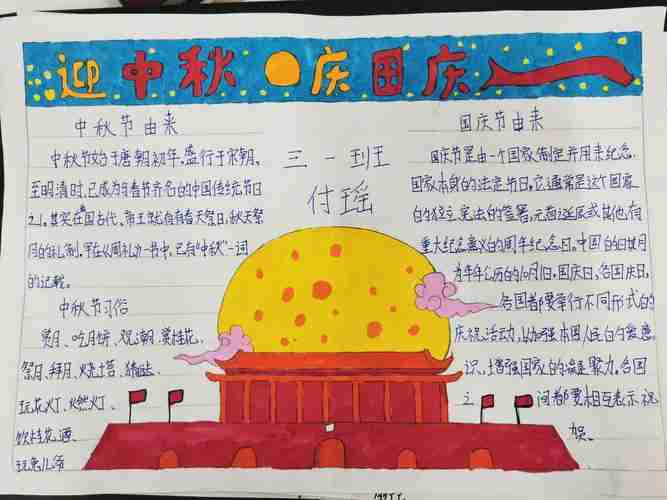 迎中秋 庆国庆
中秋节由来
中秋节始于唐朝初年,盛行于宋朝、
至明清时,已成为与春节齐名的中国传统节日
之一。其实在我国古代、帝王就有春天祭日,秋天祭
月的礼制,早在《周礼》一书中,已有“中秋”一词
的记载。
中秋节习俗
赏月、吃月饼、观潮、赏桂花、
祭月、拜月、烧塔、猜谜、
玩花灯、燃灯、
饮桂花酒、
玩兔儿爷
三一班
付瑶
国庆节由来
国庆节是由一个国家制定并用来纪念
国家本身的法定节日,它通常是这个国家
的独立、宪法的签署,元首诞辰或其他有
重大纪念意义的周年纪念日。中国的
为年年公历的10月1日,国庆日,各国庆日,
各国都要举行不同形式的
庆祝活动,以加强本国人民的
识,增强国家的凝聚力,各国
之间都要相互表示祝